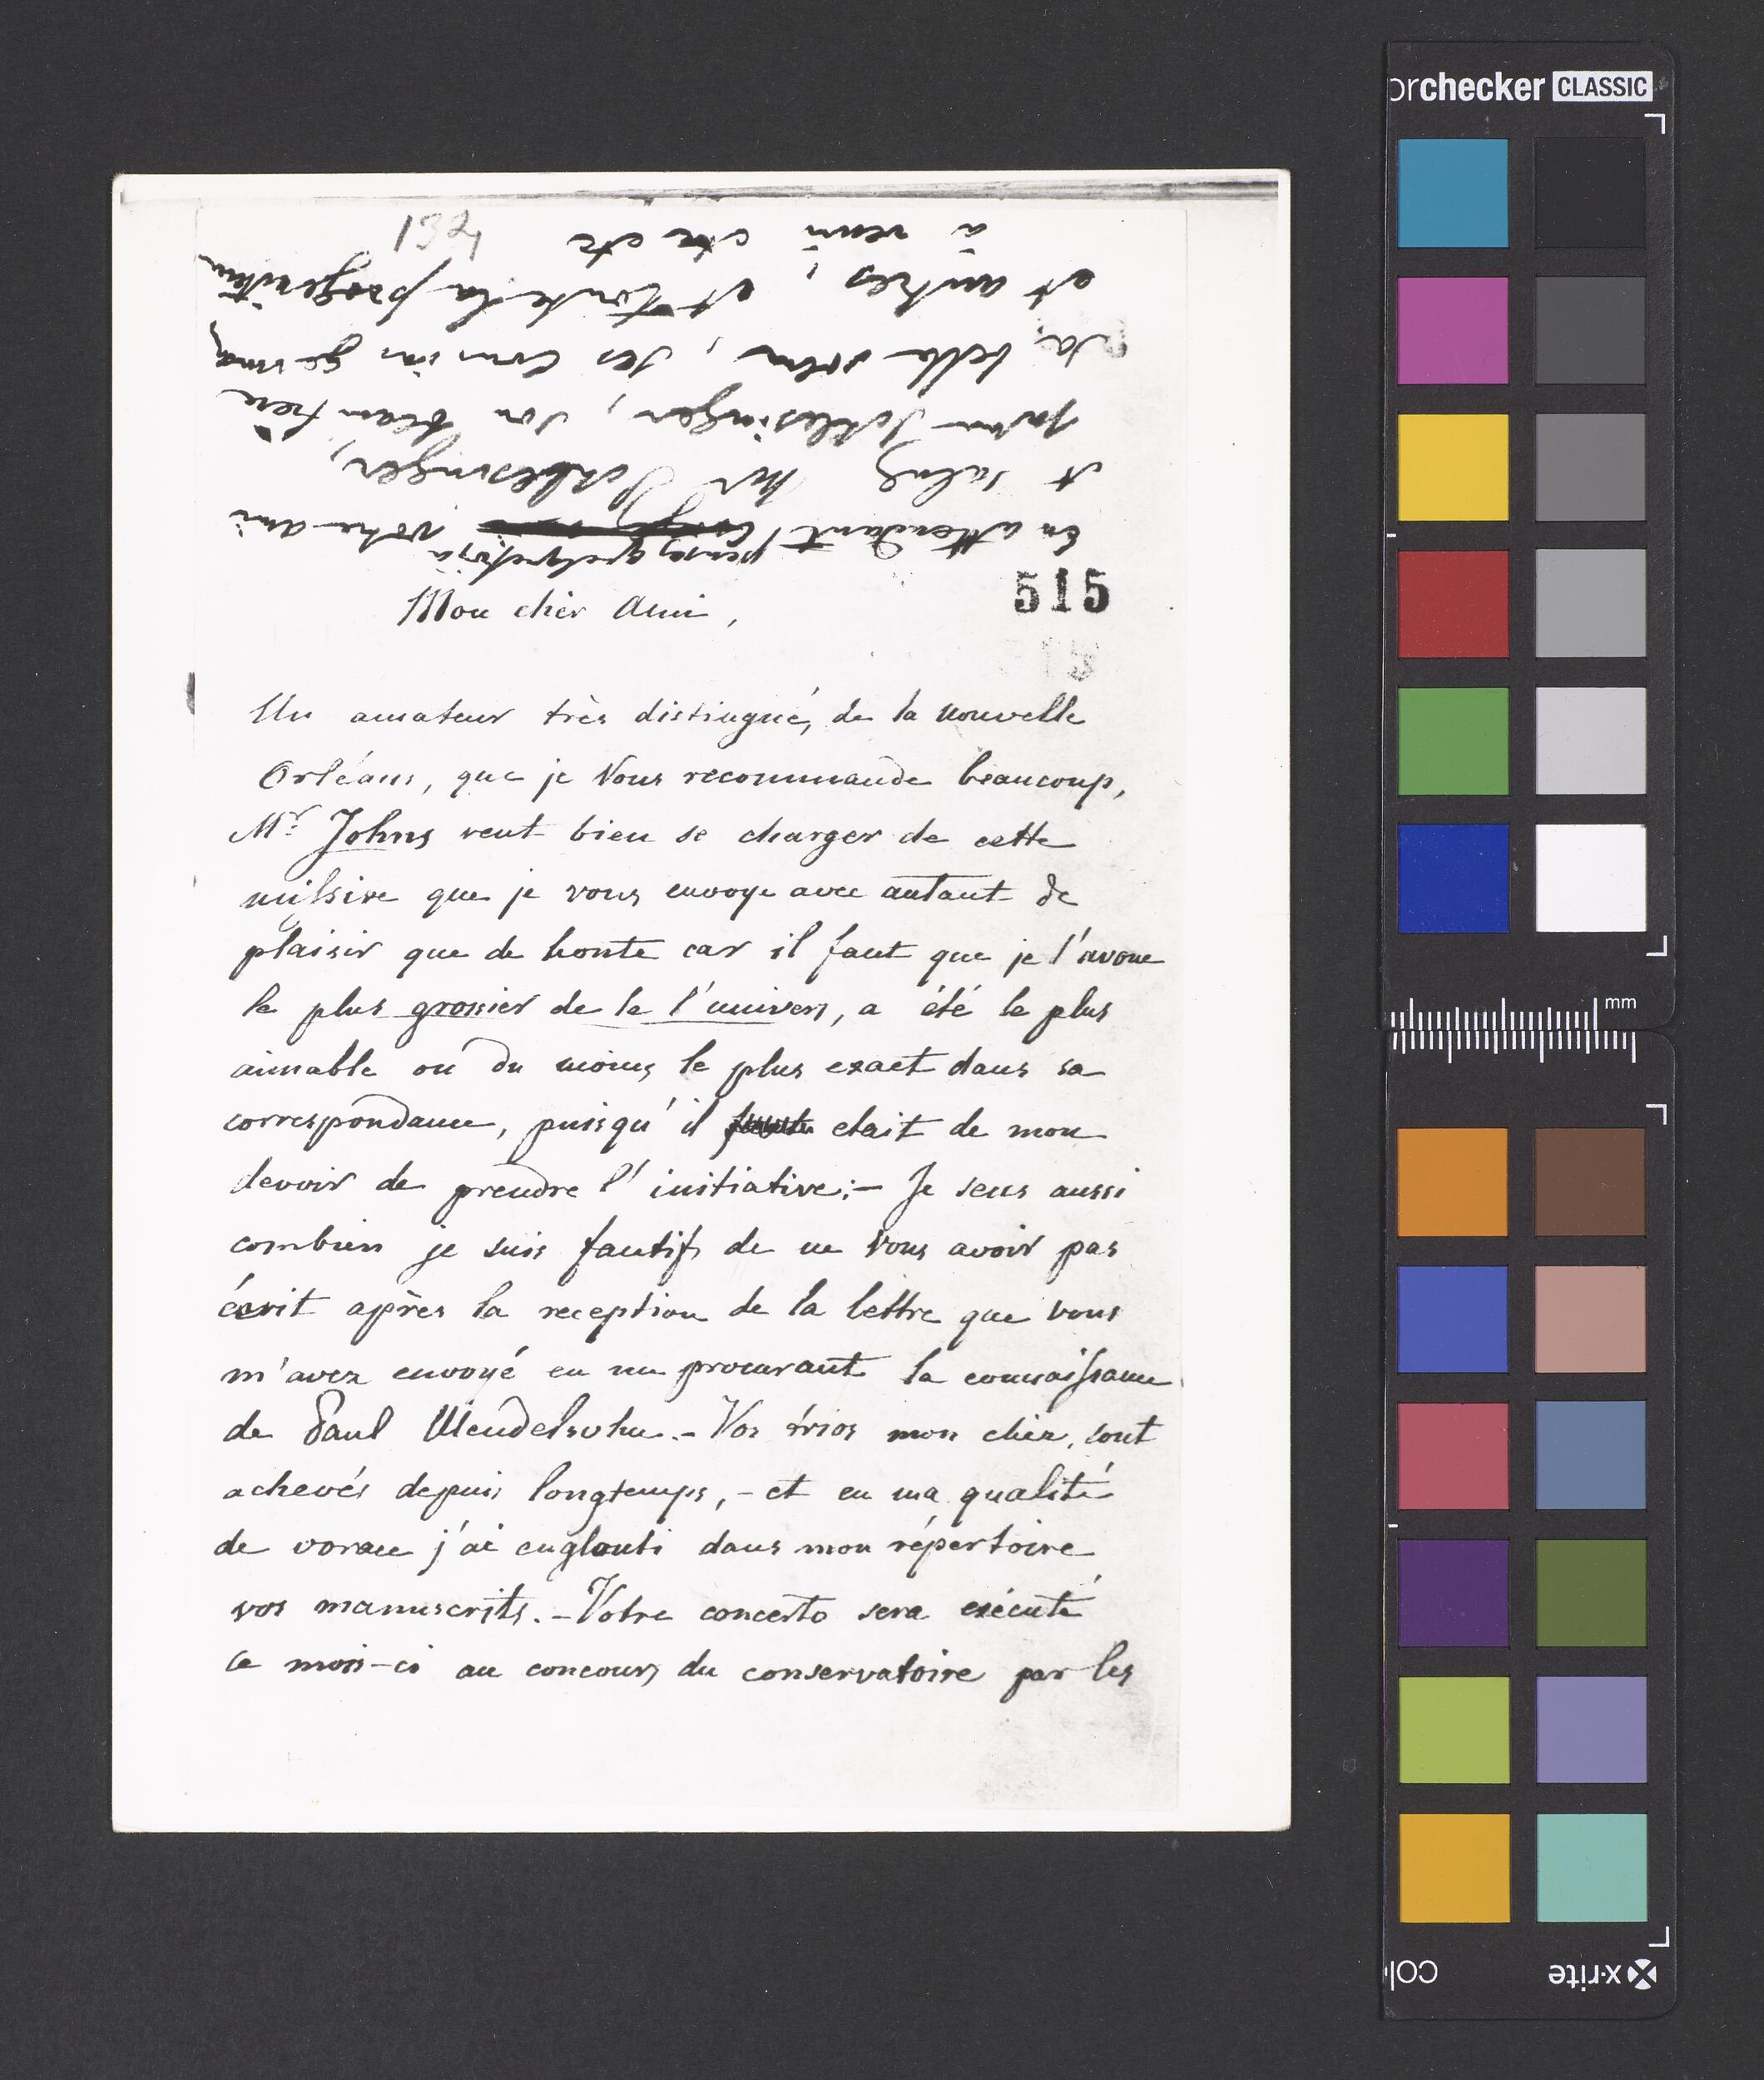 En attendant pensez quelquefois à votre ami
et saluez Mr Schlesinger,
Schlesinger, son beau frère
Sa belle sœur, ses Cousins germains
et autres, et toute la progeniture
à venir etc etc
515
Mon cher Ami,
Un amateur très distingué, de la Nouvelle
Orléans, que je Vous recommande beaucoup,
Mr. Johns veut bien se charger de cette
missive que je vous envoye avec autant de
plaisir que de honte car il faut que je l'avoue
le plus grossier de le l'univers, a été le plus
aimable ou du moins le plus exact dans sa
correspondance, puisqu'il etait de mon
devoir de prendre l'initiative:– Je sens aussi
combien je suis fautif, de ne Vous avoir pas
écrit après la reception de la lettre que vous
m'avez envoyé en me procurant la connaissance
de Paul Mendelsohn.– Vos trios mon cher, sont
achevés depuis longtemps,– et en ma qualité
de vorace j'ai englouti dans mon répertoire
vos manuscrits.– Votre concerto sera exécuté
ce mois-ci au concours du conservatoire par les
orchecker CLASSIC
mm
x·rite
col